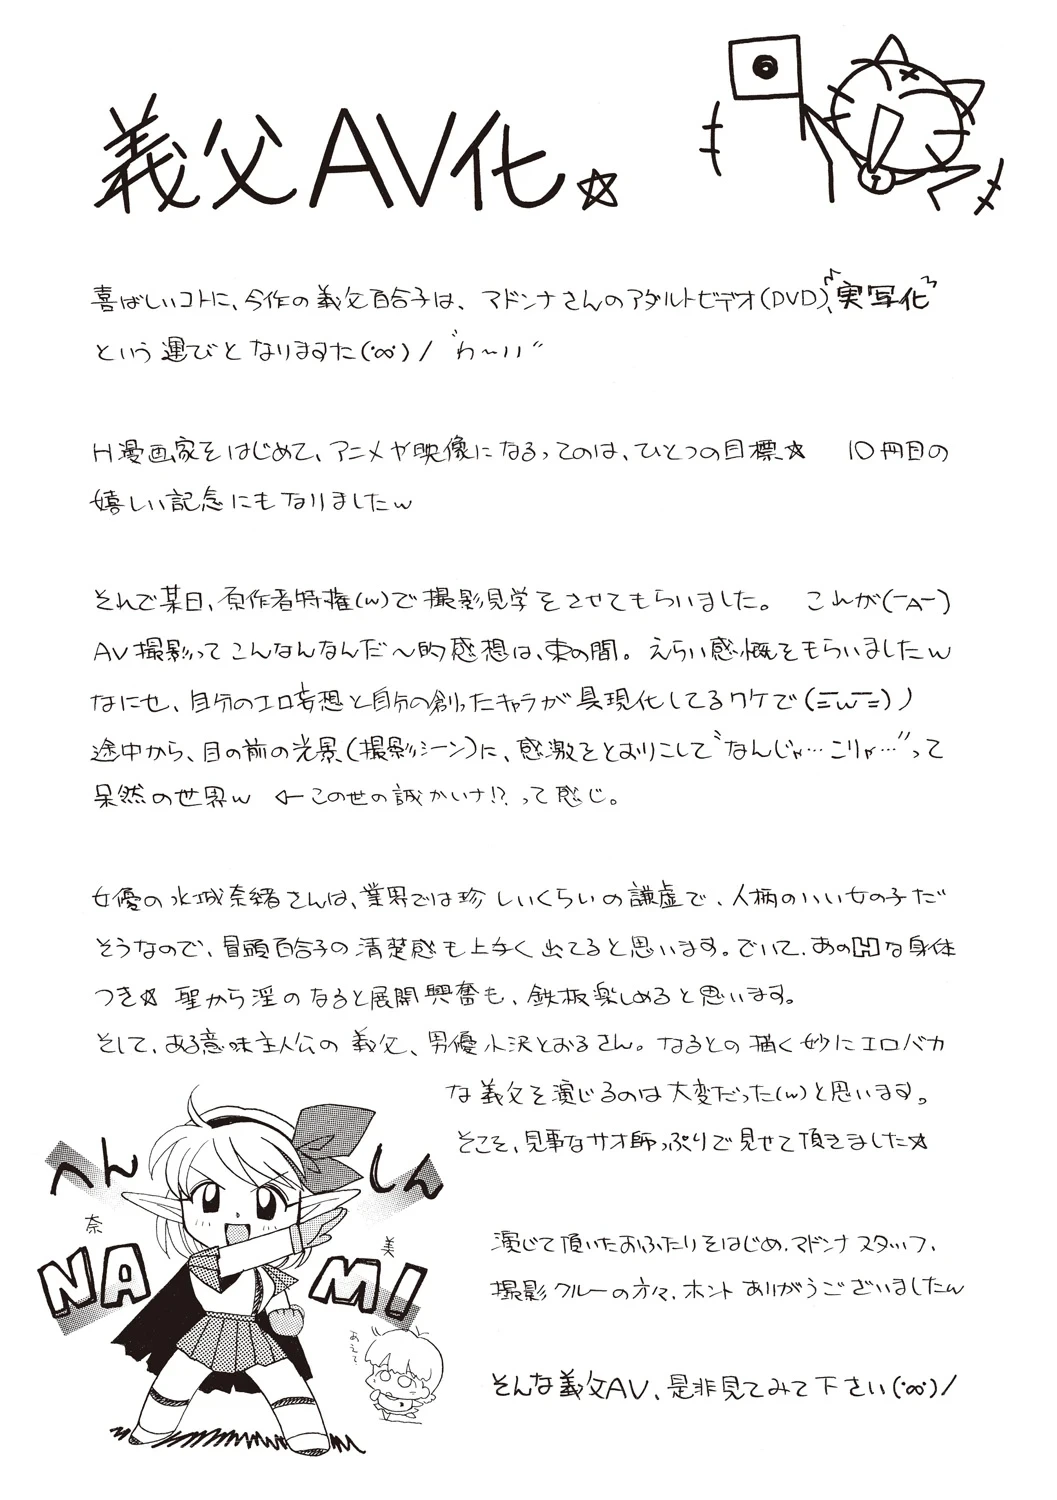 義父AV化☆
喜ばしいコトに、今作の義父百合子は、マドンナさんのアダルトビデオ(DVD)、実写化
という運びとなりますた(･∞･)/ "わ〜い"
H漫画家をはじめて、アニメや映像になるってのは、ひとつの目標☆ 10冊目の
嬉しい記念にもなりましたw
そんで某日、原作者特権(w)で撮影見学をさせてもらいました。 これが(￣A￣)
AV撮影ってこんなんなんだ〜的感想は、束の間。えらい感慨をもらいましたw
なにせ、自分のエロ妄想と自分の創ったキャラが具現化してるワケで(=w=)ノ
途中から、目の前の光景(撮影シーン)に、感激をとおりこして"なんじゃ…こりゃ…"って
呆然の世界w ←この世の誠かいナ!?って感じ。
女優の水城奈緒さんは、業界では珍しいくらいの謙虚で、人柄のいい女の子だ
そうなので、冒頭百合子の清楚感も上手く出てると思います。でいて、あのHな身体
つき☆ 聖から淫のなると展開興奮も、鉄板楽しめると思います。
そして、ある意味主人公の義父、男優小沢とおるさん。なるとの描く妙にエロバカ
な義父を演じるのは大変だった(w)と思います。
そこそ、見事なサオ師っぷりで見せて頂きました☆
へんしん
奈
美
NAMI
あえて
演じて頂いたおふたりをはじめ、マドンナスタッフ、
撮影クルーの方々、ホントありがうございましたw
そんな義父AV、是非見てみて下さい(･∞･)/